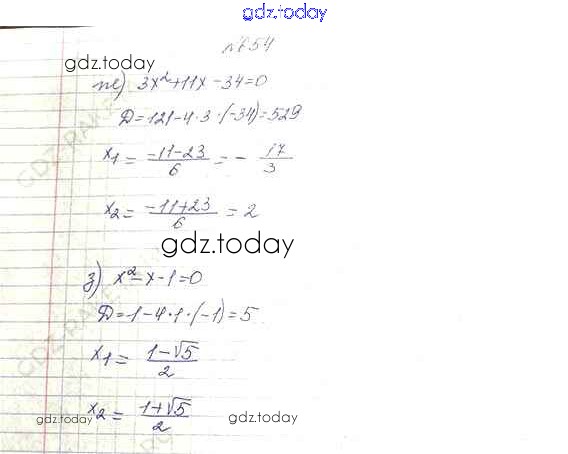 gdz.today
№654
gdz.today
ж) 3x²+11x-34=0
D=121-4·3·(-34)=529
x₁ = -11-23/6 = - 17/3
x₂ = -11+23/6 = 2
gdz.today
з) x²-x-1=0
D=1-4·1·(-1)=5
x₁ = 1-√5/2
x₂ = 1+√5/2
gdz.today gdz.today